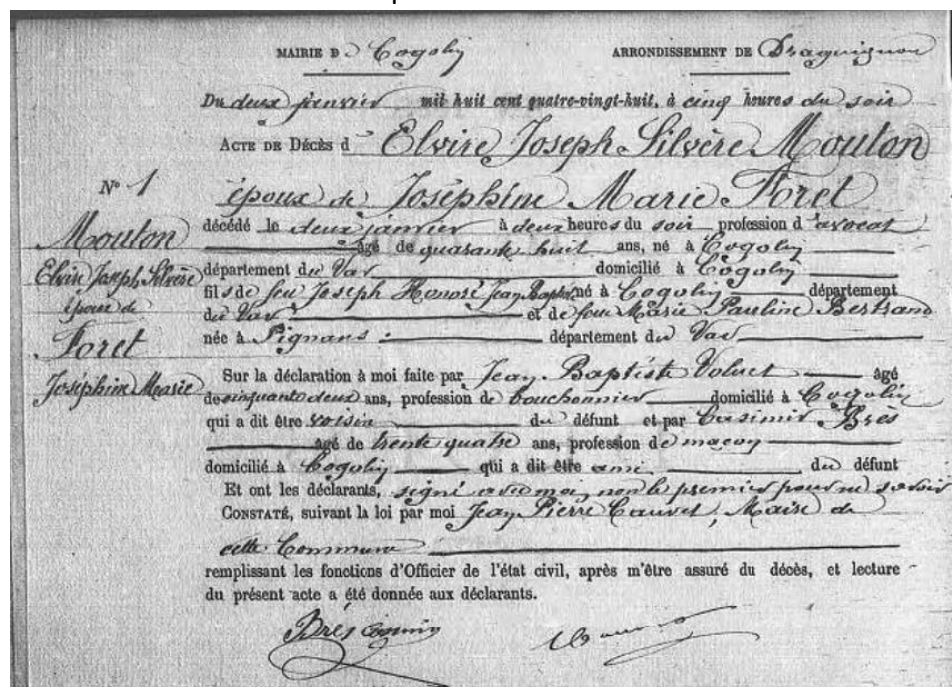 MAIRIE D Cogolin ARRONDISSEMENT DE Draguignan
Du deux janvier mil huit cent quatre-vingt-huit, à cinq heures du soir
ACTE DE DÉCÈS d Elvire Joseph Silvère Mouton
N° 1
époux de Joséphine Marie Foret
décédé le deux janvier à deux heures du soir profession d'avocat
Mouton
âgé de quarante huit ans, né à Cogolin
Elvire Joseph Silvère
département du Var domicilié à Cogolin
fils de feu Joseph Honoré Jean Baptiste né à Cogolin département
époux de
du Var et de feu Marie Pauline Bertrand
Foret
née à Pignans département du Var
Joséphine Marie
Sur la déclaration à moi faite par Jean Baptiste Volvet âgé
de cinquante deux ans, profession de bouchonnier domicilié à Cogolin
qui a dit être voisin du défunt et par Casimir Brès
âgé de trente quatre ans, profession de maçon
domicilié à Cogolin qui a dit être ami du défunt
Et ont les déclarants, signé avec moi, non le premier pour ne savoir
CONSTATÉ, suivant la loi par moi Jean Pierre Cauvet, Maire de
cette Commune
remplissant les fonctions d'Officier de l'état civil, après m'être assuré du décès, et lecture
du présent acte a été donnée aux déclarants.
Brès Casimir